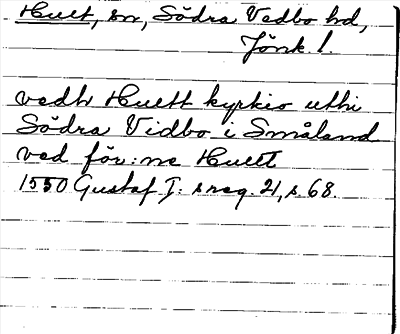 Hult, sn, Södra Vedbo hd,
Jönk. l.
vedh Huett kyrkio uthi
Södra Vidbo i Småland
ved för:ne Huett
1550 Gustaf I: s reg. 21, s. 68.